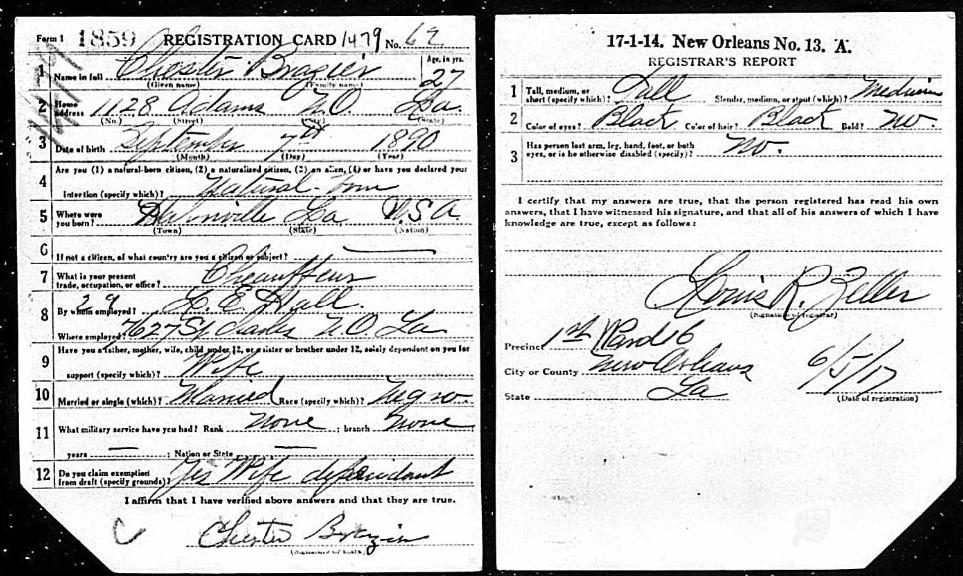 Form 1 1859 REGISTRATION CARD 1479 No. 62
1 Name in full Chester Brazier Age, in yrs. 27
(Given name) (Family name)
2 Home address 1128 Adams N.O. La.
(No.) (Street) (City) (State)
3 Date of birth September 7th 1890
(Month) (Day) (Year)
4 Are you (1) a natural-born citizen, (2) a naturalized citizen, (3) an alien, (4) or have you declared your
intention (specify which)? Natural-born
5 Where were you born? Hahnville La U.S.A.
(Town) (State) (Nation)
6 If not a citizen, of what country are you a citizen or subject?
7 What is your present trade, occupation, or office? Chauffeur
8 By whom employed? 29 Hall.
Where employed? 7627 St Charles N.O. La
9 Have you a father, mother, wife, child under 12, or a sister or brother under 12, solely dependent on you for
support (specify which)? Wife
10 Married or single (which)? Married Race (specify which)? Negro.
11 What military service have you had? Rank None ; branch None
years — ; Nation or State —
12 Do you claim exemption from draft (specify grounds)? Yes Wife dependant
I affirm that I have verified above answers and that they are true.
C Chester Brazier
17-1-14. New Orleans No. 13. A.
REGISTRAR'S REPORT
1 Tall, medium, or short (specify which)? Tall Slender, medium, or stout (which)? Medium
2 Color of eyes? Black Color of hair? Black Bald? No.
3 Has person lost arm, leg, hand, foot, or both
eyes, or is he otherwise disabled (specify)? No.
I certify that my answers are true, that the person registered has read his own
answers, that I have witnessed his signature, and that all of his answers of which I have
knowledge are true, except as follows:
Louis R. Zeller
(Signature of registrar)
Precinct 1st Ward 6
City or County New Orleans 6/5/17
State La (Date of registration)